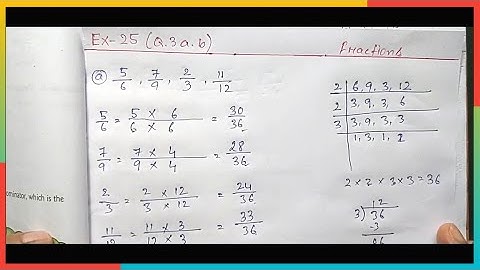 Ex-25 (Q.3 a.b)
Fractions
ⓐ 5/6, 7/9, 2/3, 11/12
5/6 = 5 × 6 / 6 × 6 = 30/36
7/9 = 7 × 4 / 9 × 4 = 28/36
2/3 = 2 × 12 / 3 × 12 = 24/36
11/12 = 11 × 3 / 12 × 3 = 33/36
2 | 6, 9, 3, 12
2 | 3, 9, 3, 6
3 | 3, 9, 3, 3
1, 3, 1, 1
2 × 2 × 3 × 3 = 36
12
3) 36
-3
06
ominator, which is the